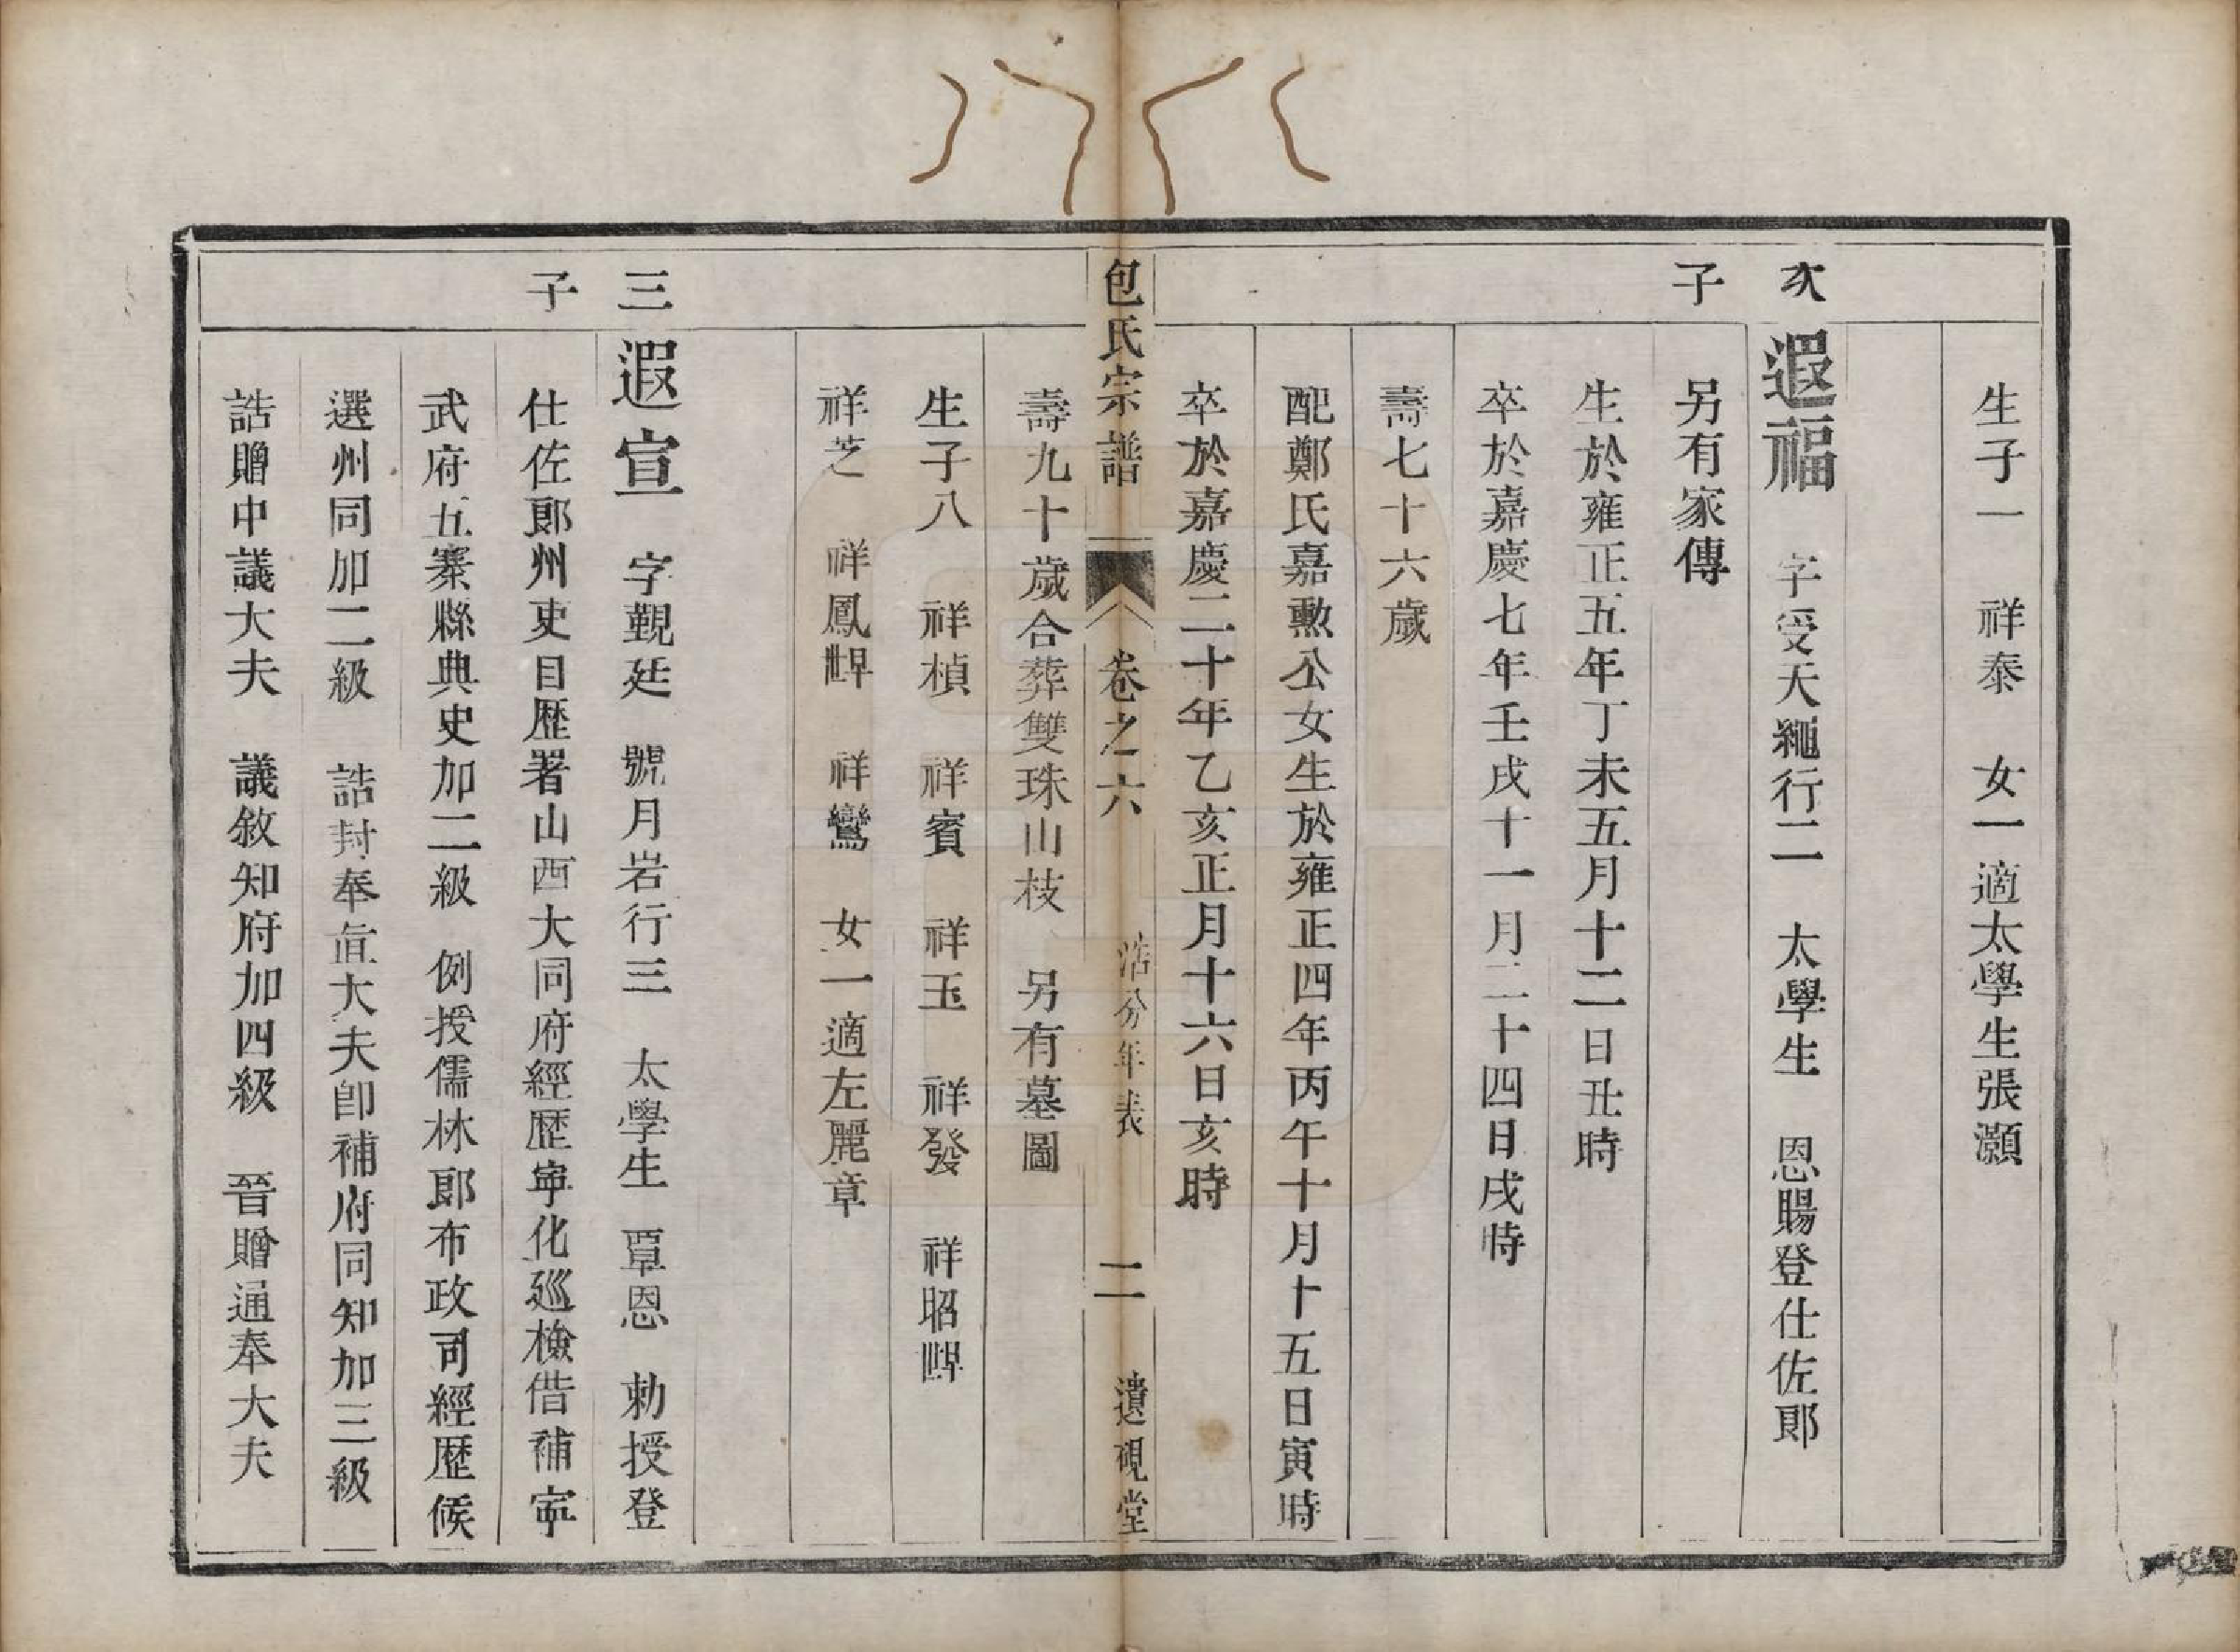 生子一　祥泰　女一適太學生張灝
次子
遐福　字受天繩行二　太學生　恩賜登仕佐郎
另有家傳
生於雍正五年丁未五月十二日丑時
卒於嘉慶七年壬戌十一月二十四日戌時
壽七十六歲
配鄭氏嘉勲公女生於雍正四年丙午十月十五日寅時
卒於嘉慶二十年乙亥正月十六日亥時
壽九十歲合葬雙珠山枝　另有墓圖
包氏宗譜　卷之六　浩分年表　二　遺硯堂
生子八　祥楨　祥賓　祥玉　祥發　祥昭
祥芝　祥鳳　祥鸞　女一適左麗章
三子
遐宣　字觀廷　號月岩行三　太學生　覃恩　勅授登
仕佐郎州吏目歷署山西大同府經歷寧化巡檢借補寧
武府五寨縣典史加二級　例授儒林郎布政司經歷候
選州同加二級　誥封奉直大夫卽補府同知加三級
誥贈中議大夫　議敘知府加四級　晉贈通奉大夫